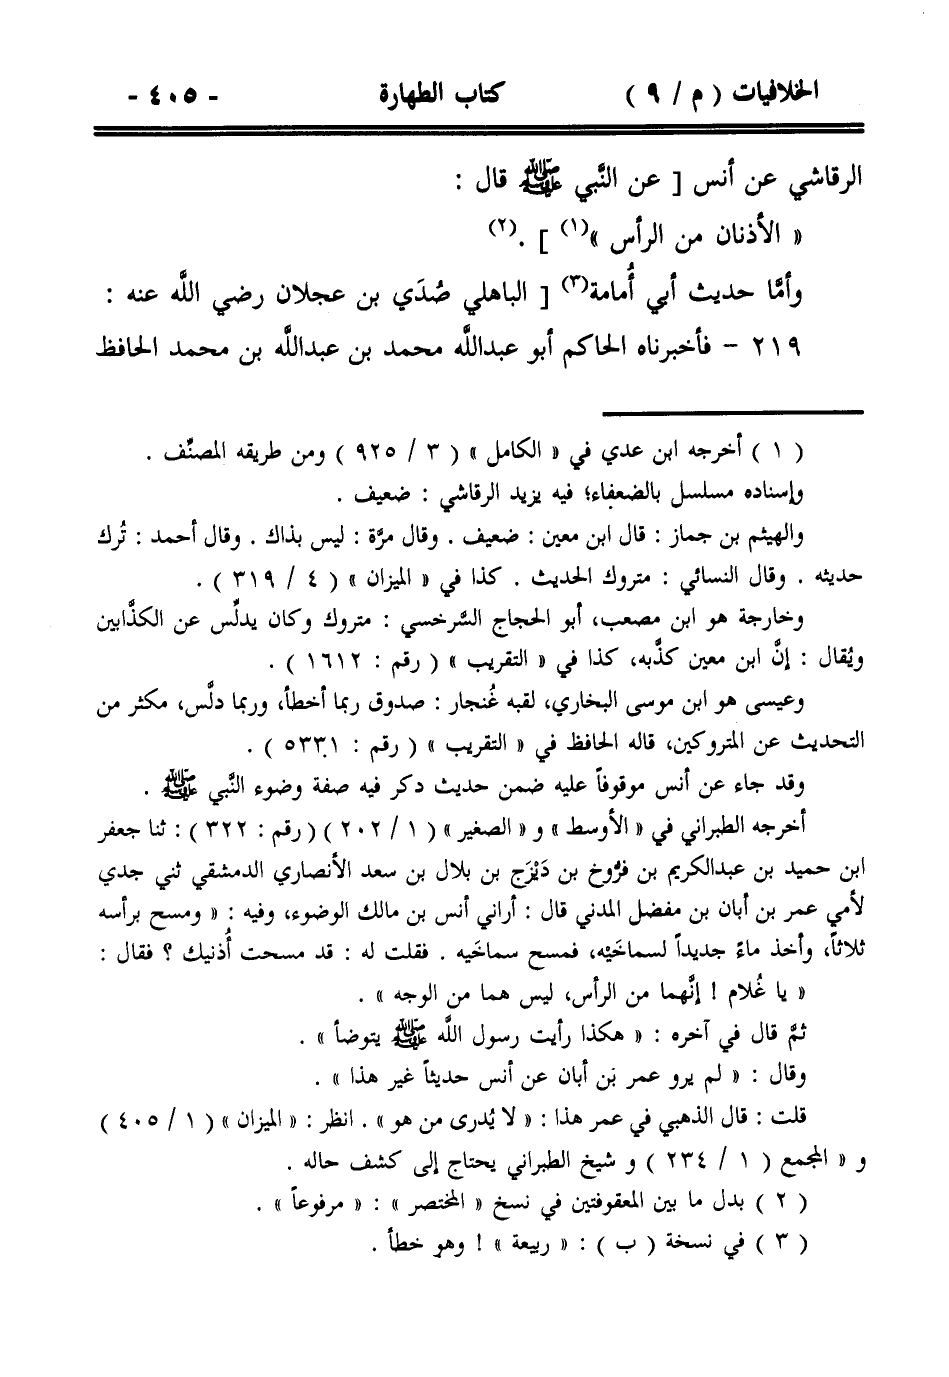 الخلافيات ( م / ٩ ) كتاب الطهارة - ٤٠٥ -
الرقاشي عن أنس [ عن النَّبي ﷺ قال :
« الأذنان من الرأس »(١) ] .(٢)
وأمَّا حديث أبي أُمامة(٣) [ الباهلي صُدَي بن عجلان رضي اللَّه عنه :
٢١٩ - فأخبرناه الحاكم أبو عبداللَّه محمد بن عبداللَّه بن محمد الحافظ
( ١ ) أخرجه ابن عدي في « الكامل » ( ٣ / ٩٢٥ ) ومن طريقه المصنِّف .
وإسناده مسلسل بالضعفاء؛ فيه يزيد الرقاشي : ضعيف .
والهيثم بن جماز : قال ابن معين : ضعيف . وقال مرَّة : ليس بذاك . وقال أحمد : تُرك
حديثه . وقال النسائي : متروك الحديث . كذا في « الميزان » ( ٤ / ٣١٩ ) .
وخارجة هو ابن مصعب، أبو الحجاج السَّرخسي : متروك وكان يدلِّس عن الكذَّابين
ويُقال : إنَّ ابن معين كذَّبه، كذا في « التقريب » ( رقم : ١٦١٢ ) .
وعيسى هو ابن موسى البخاري، لقبه غُنجار : صدوق ربما أخطأ، وربما دلَّس، مكثر من
التحديث عن المتروكين، قاله الحافظ في « التقريب » ( رقم : ٥٣٣١ ) .
وقد جاء عن أنس موقوفاً عليه ضمن حديث دكر فيه صفة وضوء النَّبي ﷺ .
أخرجه الطبراني في « الأوسط » و « الصغير » ( ١ / ٢٠٢ ) ( رقم : ٣٢٢ ) : ثنا جعفر
ابن حميد بن عبدالكريم بن فرُّوخ بن دَيْزَج بن بلال بن سعد الأنصاري الدمشقي ثني جدي
لأمي عمر بن أبان بن مفضل المدني قال : أراني أنس بن مالك الوضوء، وفيه : « ومسح برأسه
ثلاثاً، وأخذ ماءً جديداً لسماخَيْه، فمسح سماخَيه . فقلت له : قد مسحت أُذنيك ؟ فقال :
« يا غُلام ! إنَّهما من الرأس، ليس هما من الوجه » .
ثمَّ قال في آخره : « هكذا رأيت رسول اللَّه ﷺ يتوضأ » .
وقال : « لم يرو عمر بن أبان عن أنس حديثاً غير هذا » .
قلت : قال الذهبي في عمر هذا : « لا يُدرى من هو » . انظر : « الميزان » ( ١ / ٤٠٥ )
و « المجمع ( ١ / ٢٣٤ ) و شيخ الطبراني يحتاج إلى كشف حاله .
( ٢ ) بدل ما بين المعقوفتين في نسخ « المختصر » : « مرفوعاً » .
( ٣ ) في نسخة ( ب ) : « ربيعة » ! وهو خطأ .